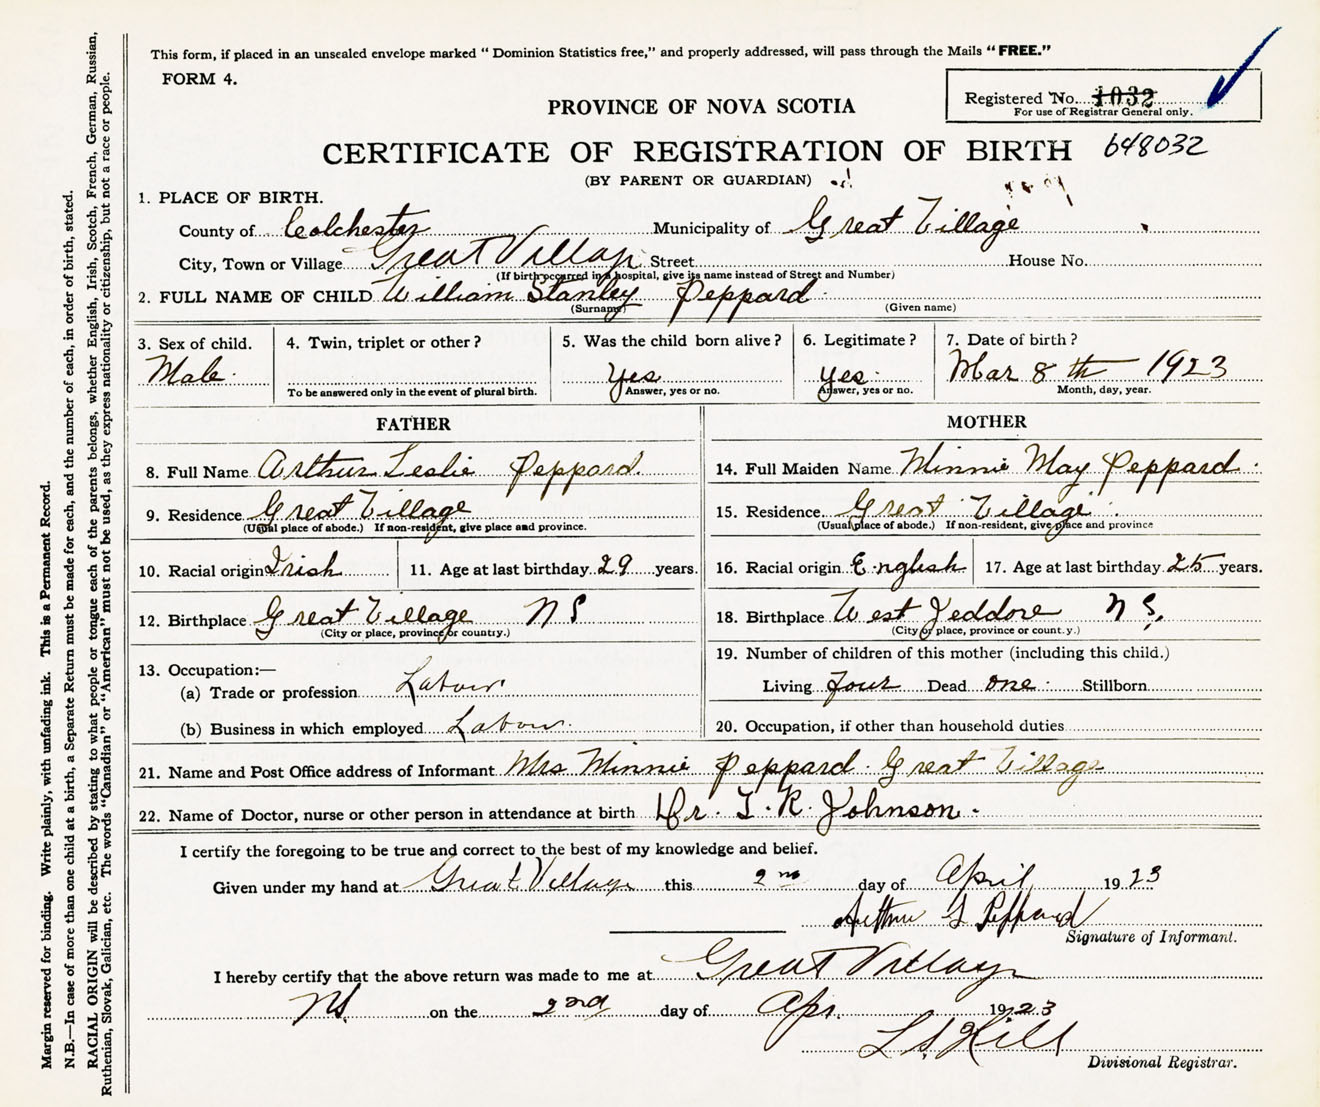 This form, if placed in an unsealed envelope marked "Dominion Statistics free," and properly addressed, will pass through the Mails "FREE."
FORM 4.
Registered No. 1032
For use of Registrar General only.
PROVINCE OF NOVA SCOTIA
CERTIFICATE OF REGISTRATION OF BIRTH 648032
(BY PARENT OR GUARDIAN)
1. PLACE OF BIRTH.
County of Colchester Municipality of Great Village
City, Town or Village Great Village Street House No.
(If birth occurred in a hospital, give its name instead of Street and Number)
2. FULL NAME OF CHILD William Stanley Peppard
(Surname) (Given name)
3. Sex of child. 4. Twin, triplet or other? 5. Was the child born alive? 6. Legitimate? 7. Date of birth?
Male Yes yes Mar 8th 1923
To be answered only in the event of plural birth. Answer, yes or no. Answer, yes or no. Month, day, year.
FATHER MOTHER
8. Full Name Arthur Leslie Peppard 14. Full Maiden Name Minnie May Peppard
9. Residence Great Village 15. Residence Great Village
(Usual place of abode.) If non-resident, give place and province. (Usual place of abode.) If non-resident, give place and province
10. Racial origin Irish 11. Age at last birthday 29 years. 16. Racial origin English 17. Age at last birthday 25 years.
12. Birthplace Great Village N S 18. Birthplace West Jeddore N S.
(City or place, province or country.) (City or place, province or county.)
13. Occupation:— 19. Number of children of this mother (including this child.)
(a) Trade or profession Labour Living four Dead one Stillborn
(b) Business in which employed Labour 20. Occupation, if other than household duties
21. Name and Post Office address of Informant Mrs Minnie Peppard Great Village
22. Name of Doctor, nurse or other person in attendance at birth Dr. T. R. Johnson.
I certify the foregoing to be true and correct to the best of my knowledge and belief.
Given under my hand at Great Village this 2nd day of April 1923
Arthur L Peppard
Signature of Informant.
I hereby certify that the above return was made to me at Great Village
NS. on the 2nd day of Apr. 1923
L S Hill
Divisional Registrar.
Margin reserved for binding. Write plainly, with unfading ink. This is a Permanent Record.
N.B.—In case of more than one child at a birth, a Separate Return must be made for each, and the number of each, in order of birth, stated.
RACIAL ORIGIN will be described by stating to what people or tongue each of the parents belongs, whether English, Irish, Scotch, French, German, Russian,
Ruthenian, Slovak, Galician, etc. The words "Canadian" or "American" must not be used, as they express nationality or citizenship, but not a race or people.